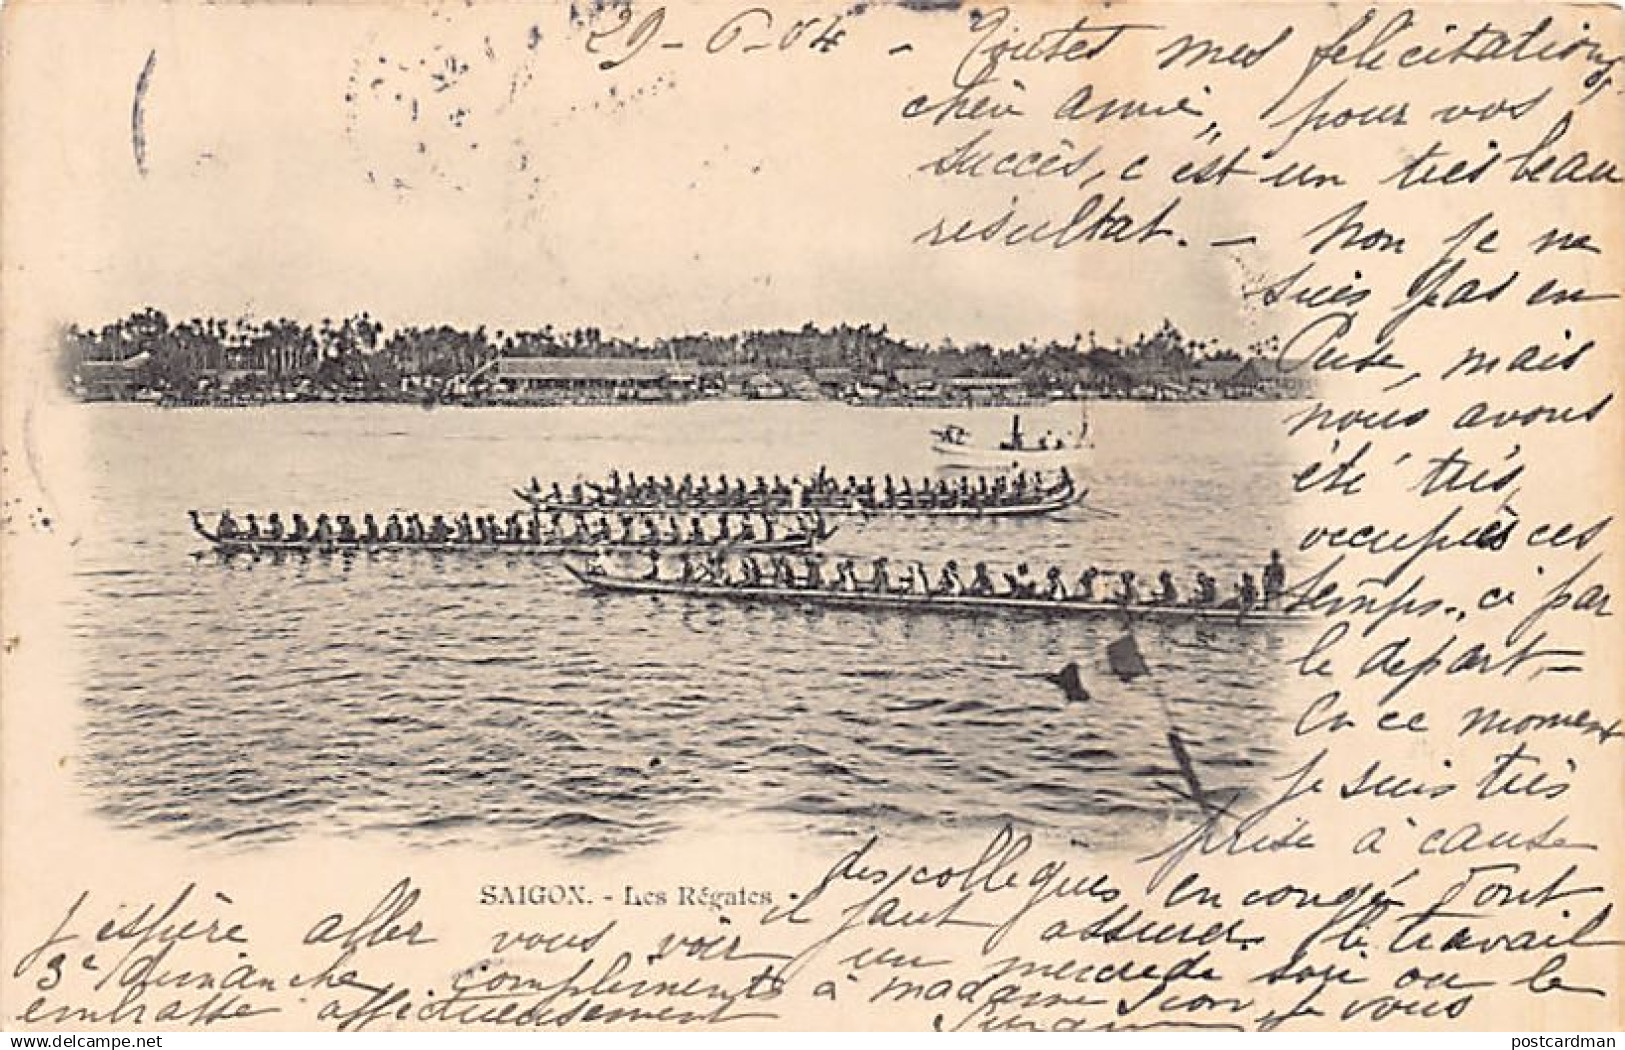 29-6-04 - Toutes mes félicitations,
chère amie, pour vos
succès, c'est un très beau
résultat. - Non je ne
suis pas en
mais
nous avons
été très
occupés ces
temps, ci par
le départ -
En ce moment
je suis très
prise à cause
des collègues en congé dont
SAIGON. - Les Régates
il faut assurer le travail
J'espère aller vous voir un mercredi soir ou le
3e dimanche compliments à madame Sion je vous
embrasse affectueusement
postcardman